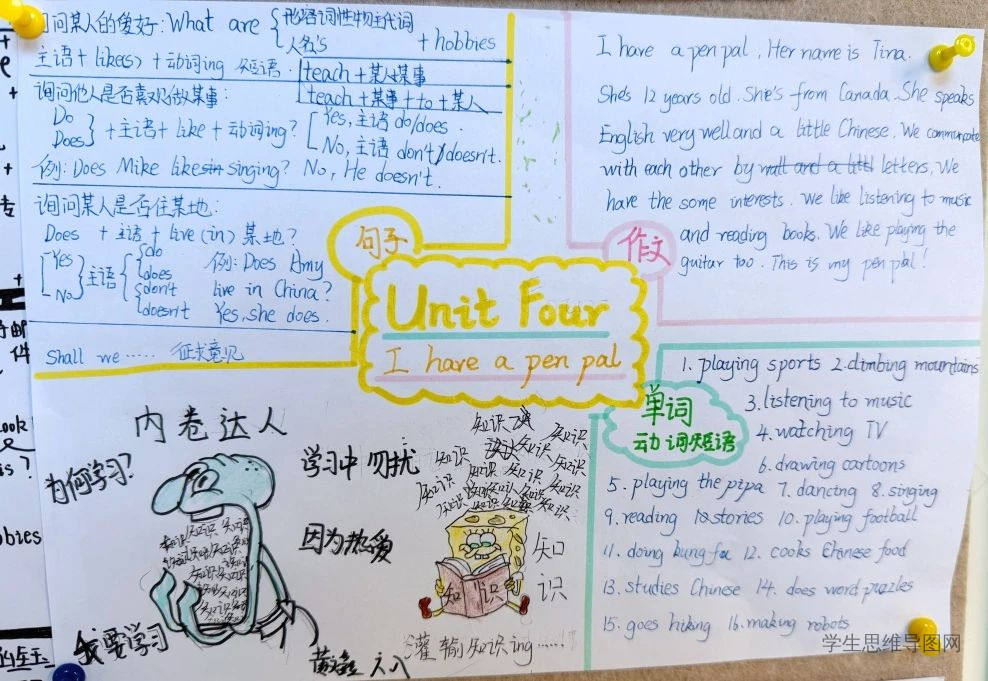 询问某人的爱好: What are { 形容词性物主代词
人名's + hobbies
主语 + like(s) + 动词ing 短语.
teach + 某人 + 某事
teach + 某事 + to + 某人
询问他人是否喜欢做某事:
Do
Does } + 主语 + like + 动词ing?
Yes, 主语 do/does.
No, 主语 don't/doesn't.
例: Does Mike like singing? No, He doesn't.
询问某人是否住某地:
Does + 主语 + live (in) 某地?
Yes
No
主语
do
does
don't
doesn't
例: Does Amy
live in China?
Yes, she does.
Shall we …… 征求意见
句子
作文
I have a pen pal. Her name is Tina.
She's 12 years old. She's from Canada. She speaks
English very well and a little Chinese. We communcate
with each other by letters. We
have the some interests. We like listening to music
and reading books. We like playing the
guitar too. This is my pen pal!
Unit Four
I have a pen pal
单词
动词短语
1. playing sports 2. climbing mountains
3. listening to music
4. watching TV
6. drawing cartoons
5. playing the pipa 7. dancing 8. singing
9. reading stories 10. playing football
11. doing kung fu 12. cooks Chinese food
13. studies Chinese 14. does word puzzles
15. goes hiking 16. making robots
内卷达人
为何学习?
学习中勿扰
因为热爱
我要学习
知识
知识
知识
灌输知识ing……
学生思维导图网